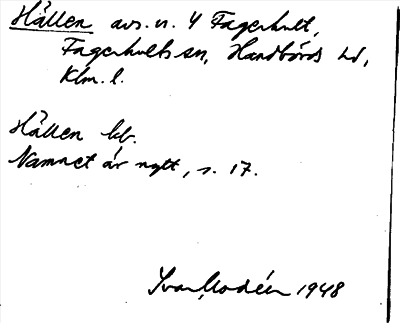 Hällen avs. u. 4 Fagerhult,
Fagerhults sn, Handbörds hd,
Klm. l.
Hällen bb.
Namnet är nytt, s. 17.
Ivar Modéer 1948